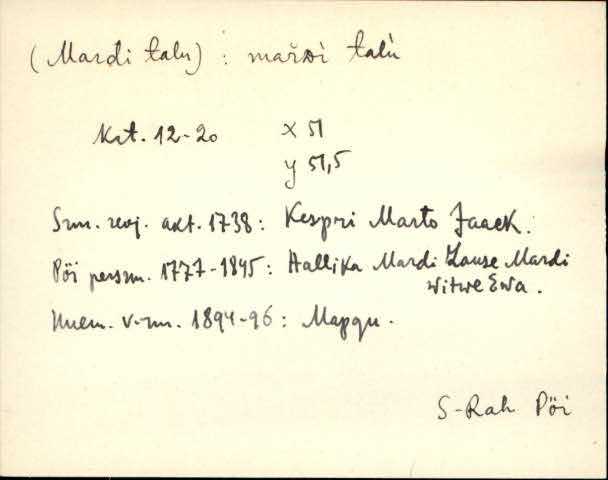 (Mardi talu) : mařᴅì talù
Kat. 12-20 x 51
y 51,5
Srm. revj. akt. 1738: Kespri Marto Jaack.
Pöi persrn. 1777-1845: Hallika Mardi Lause Mardi
witwe Ewa.
v-rm. 1894-96: Марди.
S-Rah Pöi